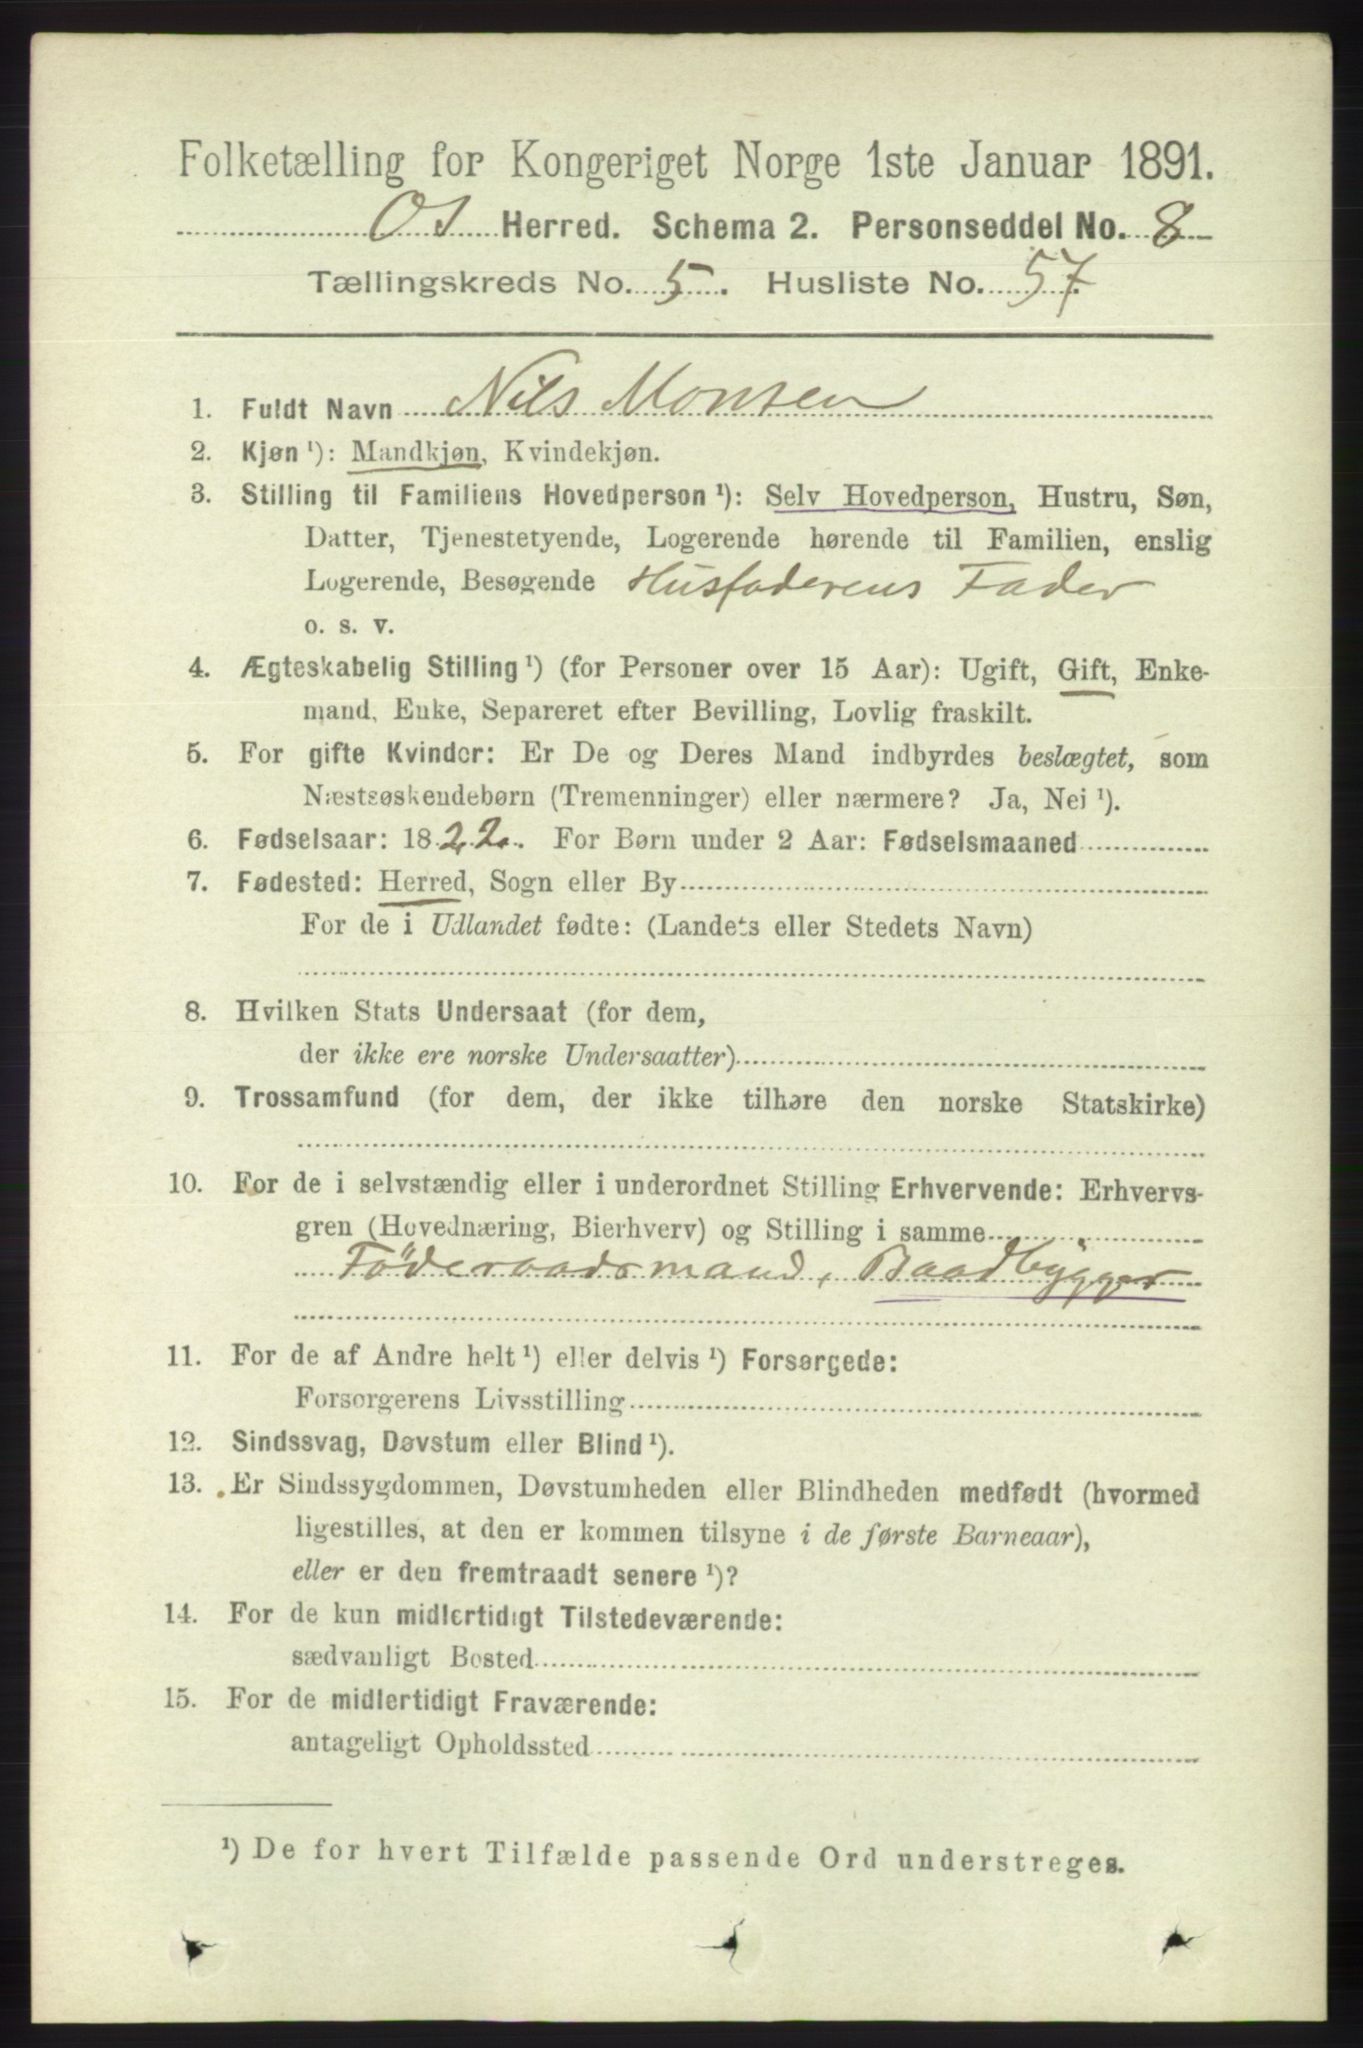 Folketælling for Kongeriget Norge 1ste Januar 1891.
Os Herred. Schema 2. Personseddel No. 8
Tællingskreds No. 5. Husliste No. 57.
1. Fuldt Navn Nils Monsen
2. Kjøn ¹): Mandkjøn, Kvindekjøn.
3. Stilling til Familiens Hovedperson ¹): Selv Hovedperson, Hustru, Søn,
Datter, Tjenestetyende, Logerende hørende til Familien, enslig
Logerende, Besøgende Husfaderens Fader
o. s. v.
4. Ægteskabelig Stilling ¹) (for Personer over 15 Aar): Ugift, Gift, Enke-
mand, Enke, Separeret efter Bevilling, Lovlig fraskilt.
5. For gifte Kvinder: Er De og Deres Mand indbyrdes beslægtet, som
Næstsøskendebørn (Tremenninger) eller nærmere? Ja, Nei ¹).
6. Fødselsaar: 1822. For Børn under 2 Aar: Fødselsmaaned
7. Fødested: Herred, Sogn eller By
For de i Udlandet fødte: (Landets eller Stedets Navn)
8. Hvilken Stats Undersaat (for dem,
der ikke ere norske Undersaatter)
9. Trossamfund (for dem, der ikke tilhøre den norske Statskirke)
10. For de i selvstændig eller i underordnet Stilling Erhvervende: Erhvervs-
gren (Hovednæring, Bierhverv) og Stilling i samme
Föderaadsmand, Baadbygger
11. For de af Andre helt ¹) eller delvis ¹) Forsørgede:
Forsørgerens Livsstilling
12. Sindssvag, Døvstum eller Blind ¹).
13. Er Sindssygdommen, Døvstumheden eller Blindheden medfødt (hvormed
ligestilles, at den er kommen tilsyne i de første Barneaar),
eller er den fremtraadt senere ¹)?
14. For de kun midlertidigt Tilstedeværende:
sædvanligt Bosted
15. For de midlertidigt Fraværende:
antageligt Opholdssted
¹) De for hvert Tilfælde passende Ord understreges.